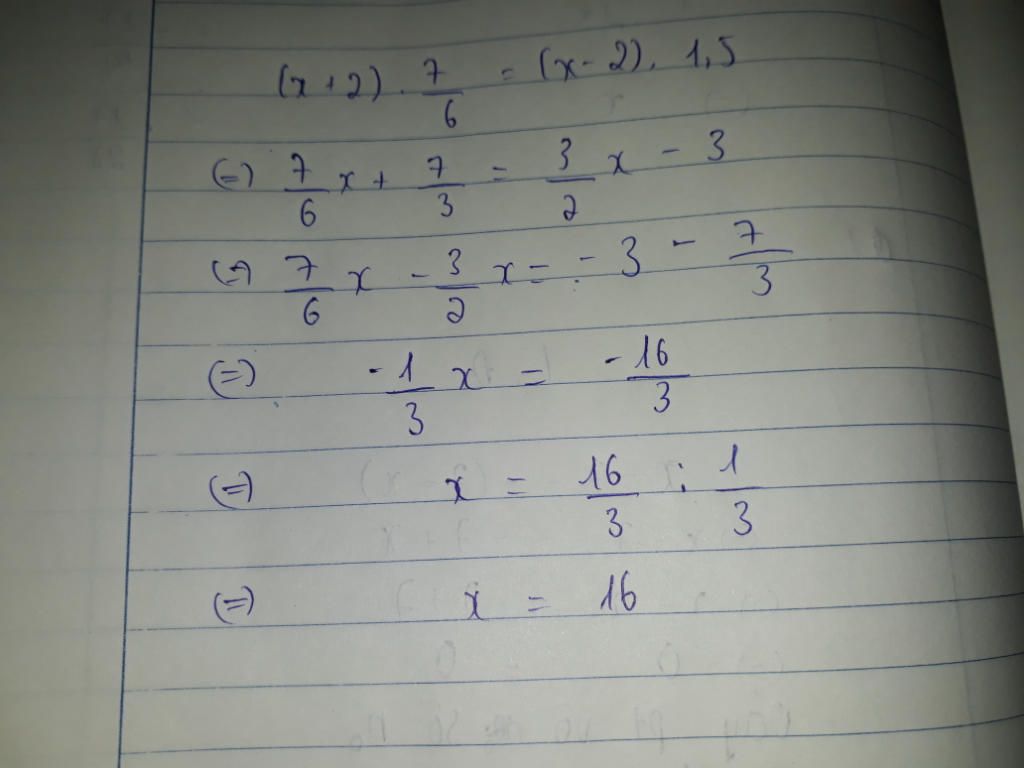 (x + 2) . 7/6 = (x - 2) . 1,5
(=) 7/6 x + 7/3 = 3/2 x - 3
(=) 7/6 x - 3/2 x = - 3 - 7/3
(=) -1/3 x = -16/3
(=) x = 16/3 : 1/3
(=) x = 16